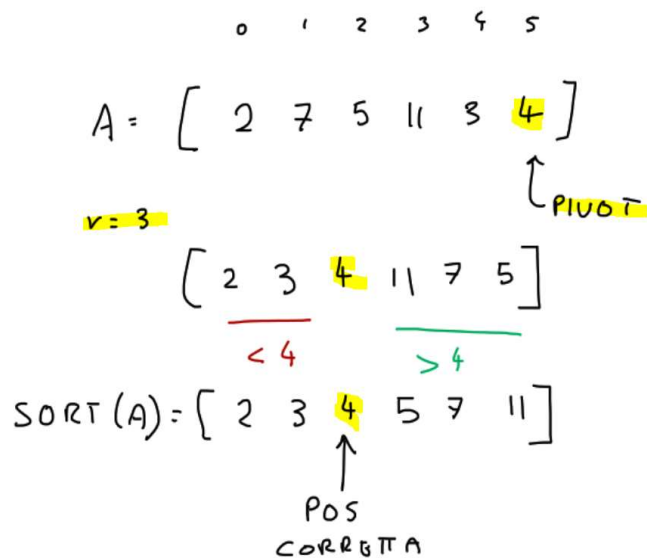 0 1 2 3 4 5
A = [ 2 7 5 11 3 4 ]
PIVOT
r = 3
[ 2 3 4 11 7 5 ]
< 4 > 4
SORT(A) = [ 2 3 4 5 7 11 ]
POS
CORRETTA